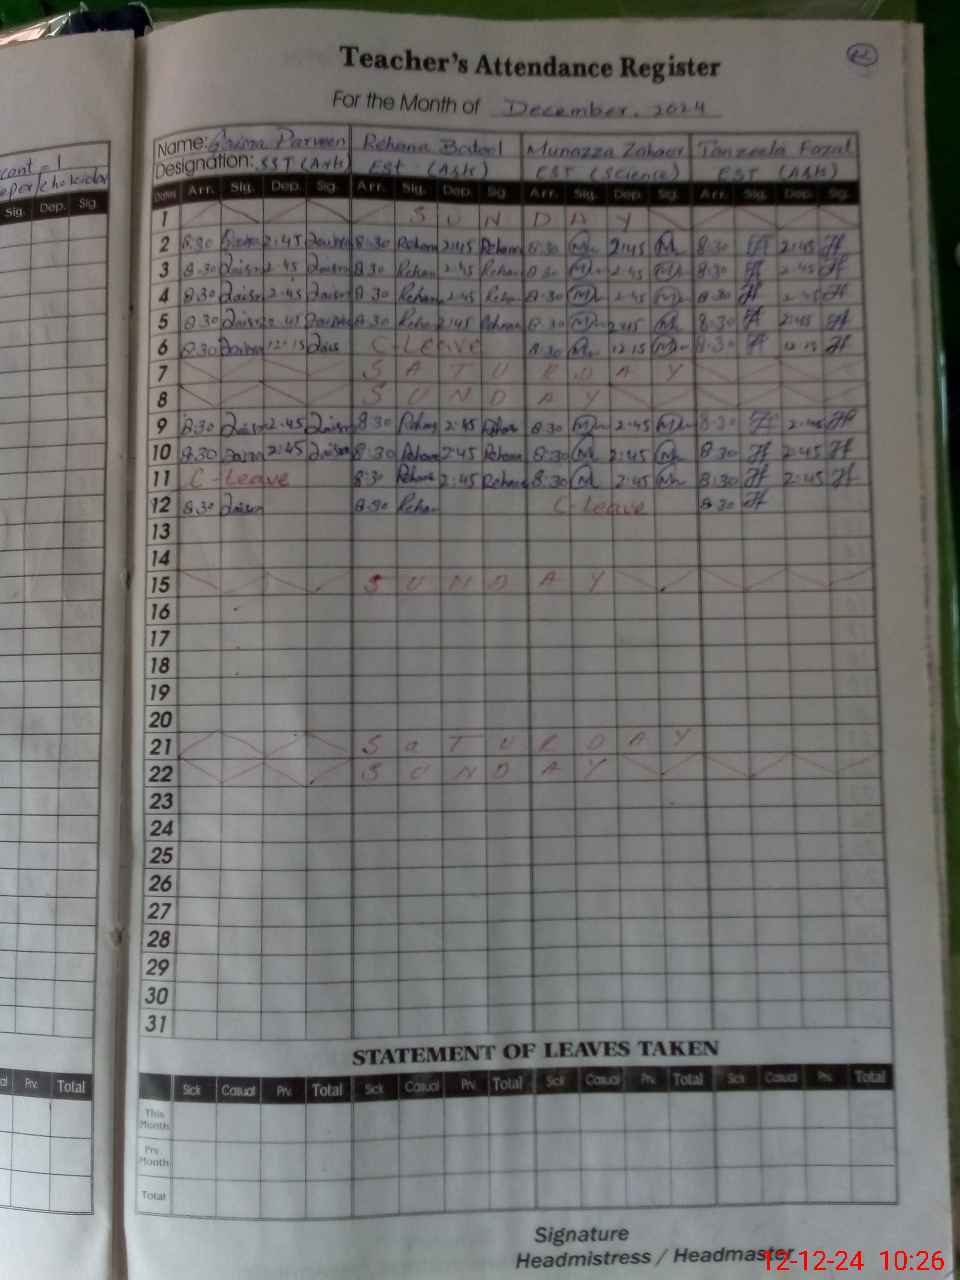 Teacher's Attendance Register
For the Month of December, 2024
cant - 1
Sig. Dep. Sig.
Name: Parveen Rehana Munazza Zaheer Tanzeela Fazal
Designation: SST (Arts) EST (Arts) EST (Science) EST (Arts)
Dates Arr. Sig. Dep. Sig. Arr. Sig. Dep. Sig. Arr. Sig. Dep. Sig. Arr. Sig. Dep. Sig.
1 S U N D A Y
2 8:30 2:45 8:30 Rehana 2:45 Rehana 8:30 2:45 8:30 2:45
3 8:30 2:45 8:30 Rehana 2:45 Rehana 8:30 2:45 8:30 2:45
4 8:30 2:45 8:30 Rehana 2:45 Rehana 8:30 2:45 8:30 2:45
5 8:30 2:45 8:30 Rehana 2:45 Rehana 8:30 2:45 8:30 2:45
6 8:30 12:15 C-Leave 8:30 12:15 8:30 12:15
7 S A T U R D A Y
8 S U N D A Y
9 8:30 2:45 8:30 Rehana 2:45 Rehana 8:30 2:45 8:30 2:45
10 8:30 2:45 8:30 Rehana 2:45 Rehana 8:30 2:45 8:30 2:45
11 C-Leave 8:30 Rehana 2:45 Rehana 8:30 2:45 8:30 2:45
12 8:30 8:30 Rehana C-Leave 8:30
13
14
15 S U N D A Y
16
17
18
19
20
21 S a T U R D A Y
22 S U N D A Y
23
24
25
26
27
28
29
30
31
STATEMENT OF LEAVES TAKEN
Prv. Total
Sick Casual Prv. Total Sick Casual Prv. Total Sick Casual Prv. Total Sick Casual Prv. Total
This Month
Prv. Month
Total
Signature
Headmistress / Headmaster
12-12-24 10:26